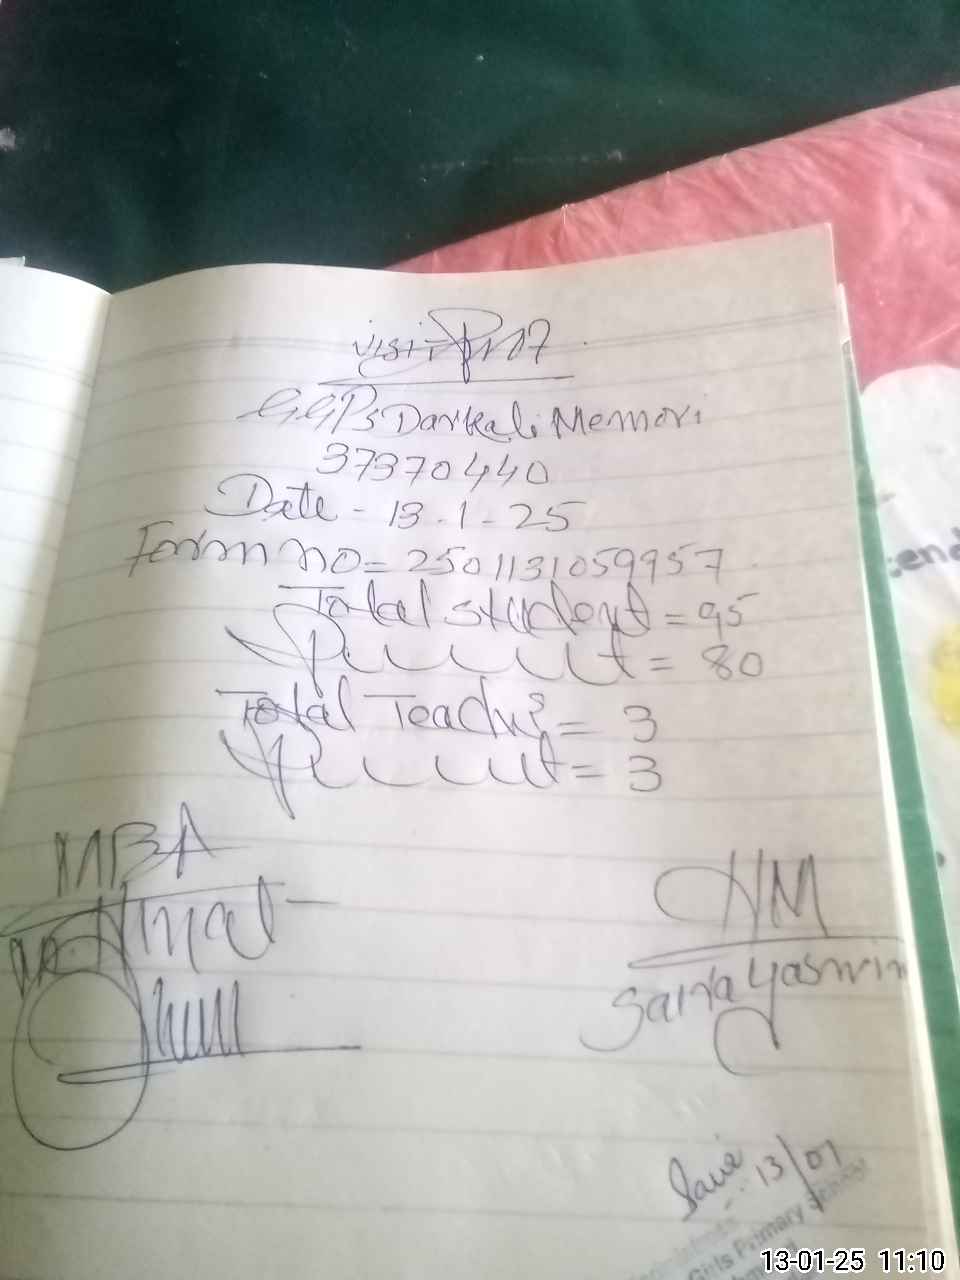 visit
G.G.P.S Darkali Memori
37370440
Date - 13-1-25
Form no = 2501131059957
Total student = 95
Present = 80
Total Teachers = 3
Present = 3
MBA
HM
Saira Yasmin
13/01
Girls Primary School
13-01-25 11:10